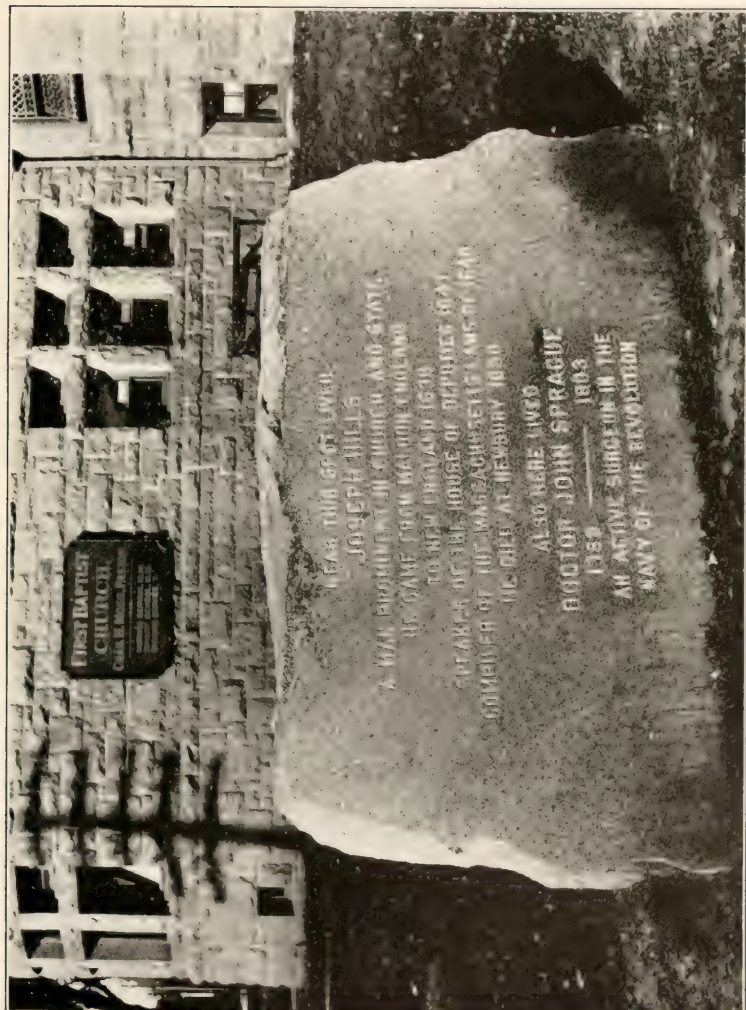 FIRST BAPTIST
CHURCH
NEAR THIS SPOT LIVED
JOSEPH HILLS
A MAN PROMINENT IN CHURCH AND STATE
HE CAME FROM MALDON ENGLAND
TO NEW ENGLAND 1638
SPEAKER OF THE HOUSE OF DEPUTIES 1647
COMPILER OF THE MASSACHUSETTS LAWS OF 1648
HE DIED AT NEWBURY 1688
ALSO HERE LIVED
DOCTOR JOHN SPRAGUE
1803
AN ACTIVE SURGEON IN THE
NAVY OF THE REVOLUTION